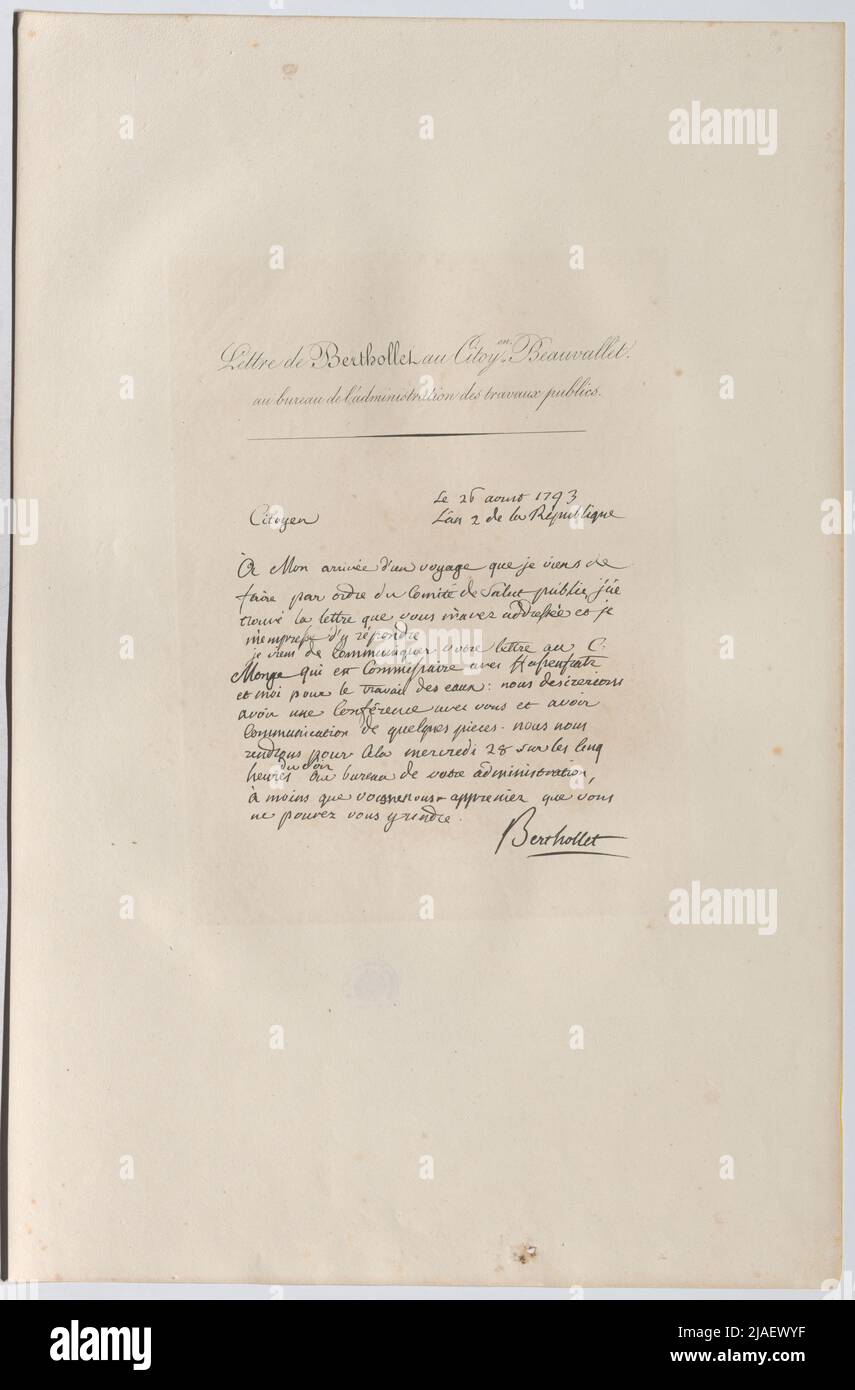 Lettre de Berthollet au Citoy.en Beauvallet.
au bureau de l'administration des travaux publics.
Le 26 aoust 1793
Citoyen L'an 2 de la République
A Mon arrivée d'un voyage que je viens de
faire par ordre du Comité de Salut public, j'ai
trouvé la lettre que vous m'avez addressée et je
m'empresse d'y répondre
je viens de communiquer votre lettre au C.
Monge qui est Commissaire avec Hassenfratz
et moi pour le travail des eaux: nous desirerions
avoir une conférence avec vous et avoir
Communication de quelques pieces. nous nous
rendrons pour cela mercredi 28 sur les cinq
heures du soir au bureau de votre administration,
à moins que vous ne nous appreniez que vous
ne pouvez vous y rendre.
Berthollet
alamy
Image ID: 2JAEWYF
www.alamy.com